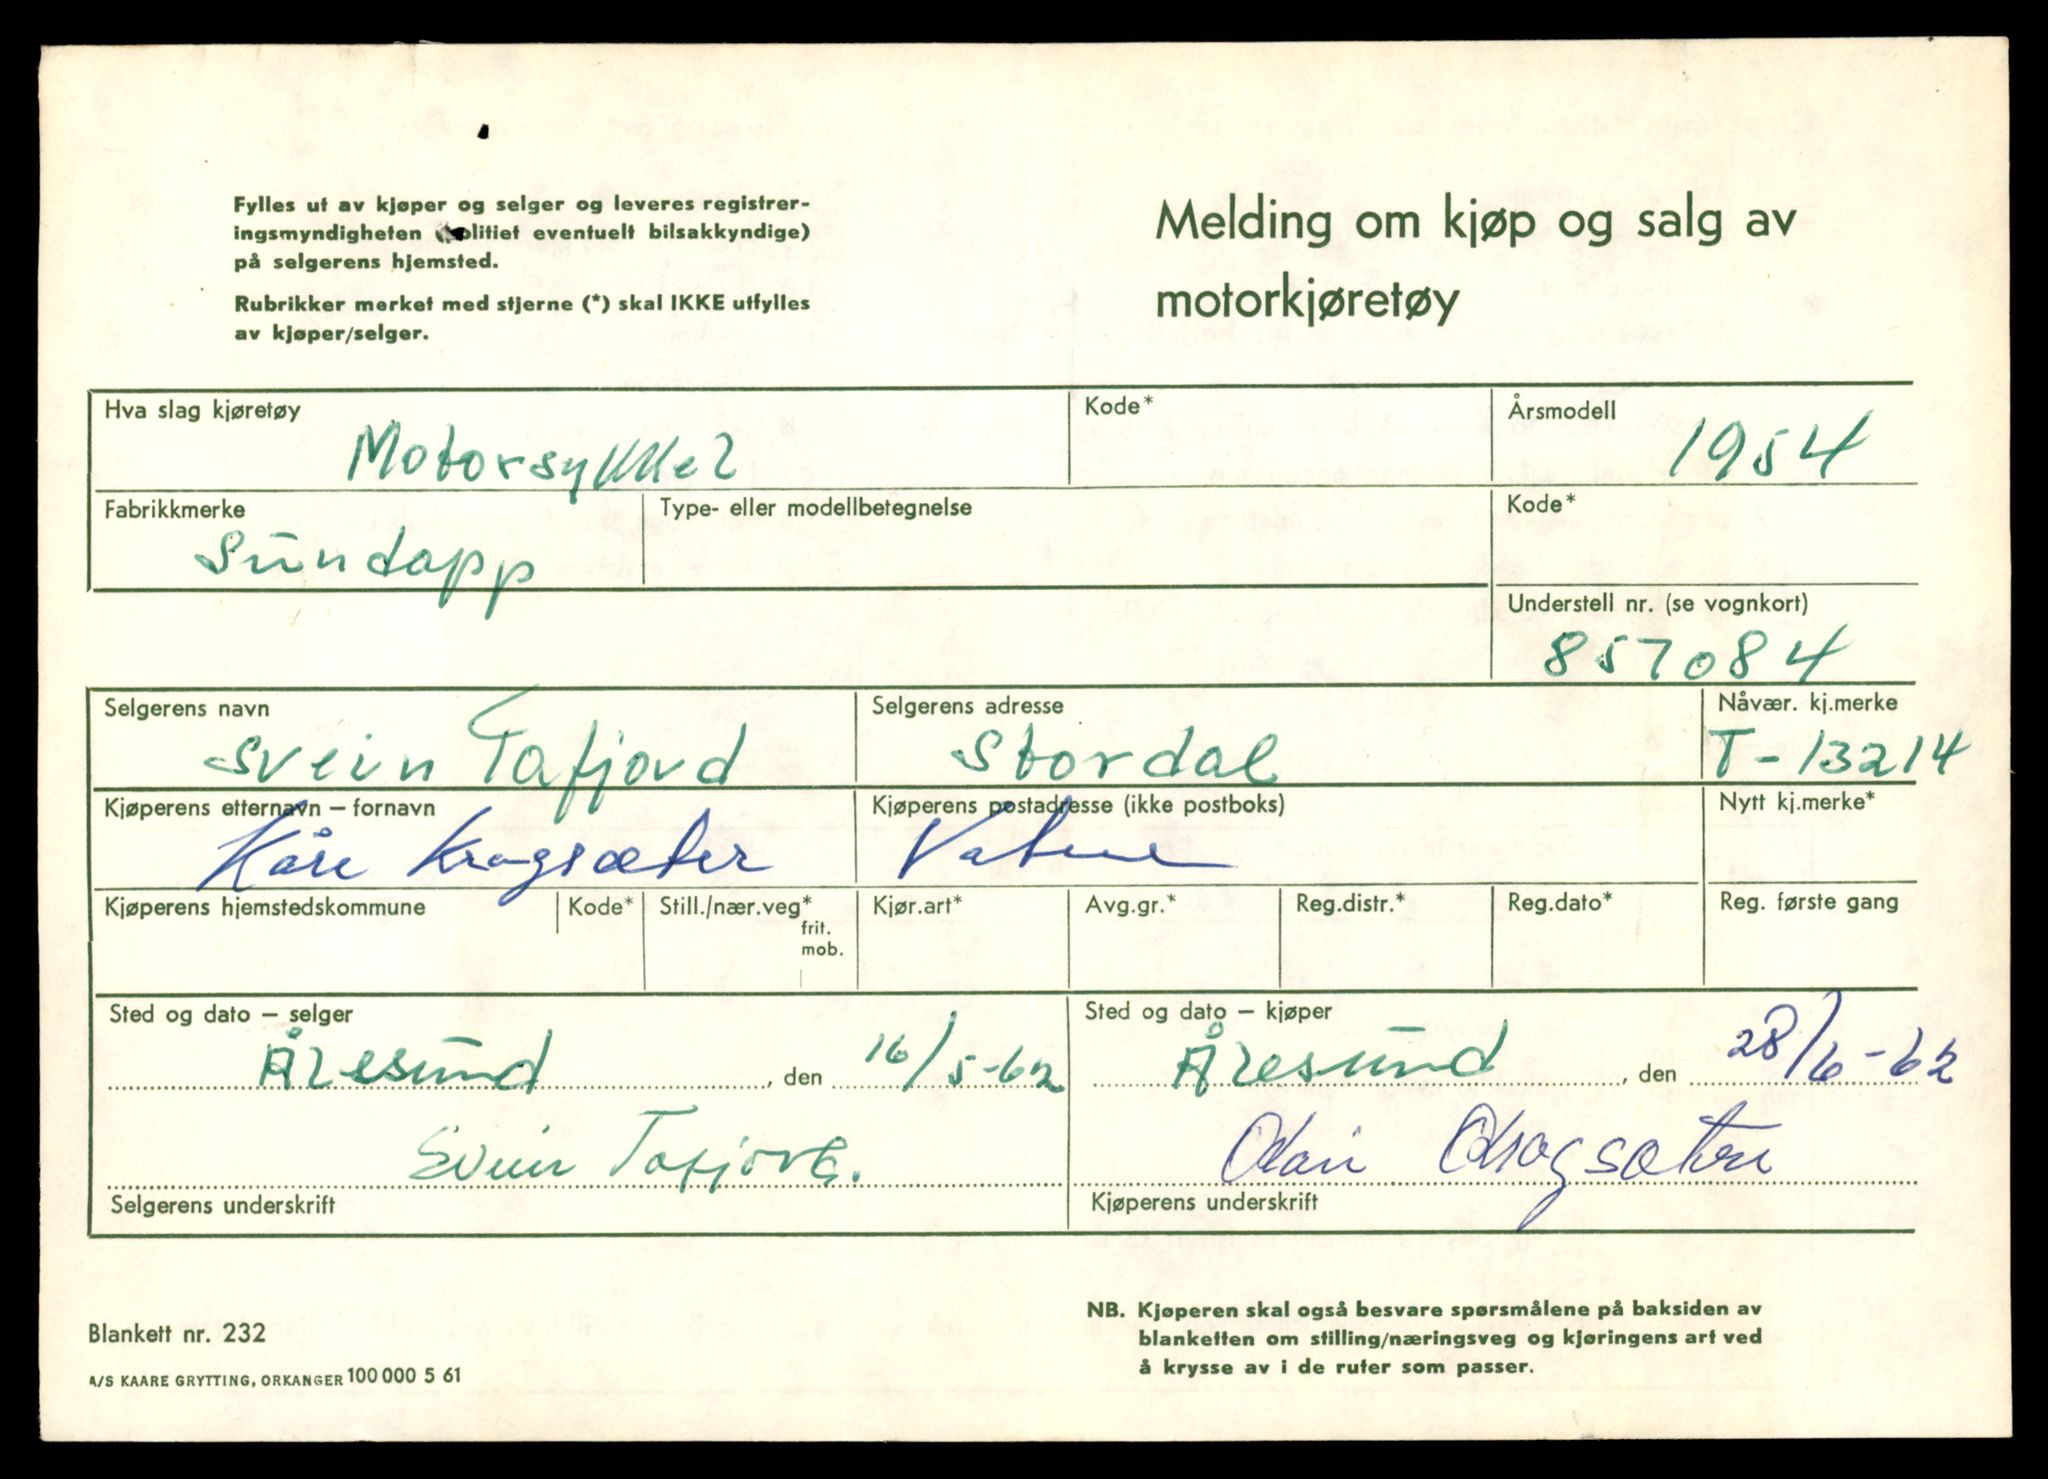 Fylles ut av kjøper og selger og leveres registrer-
ingsmyndigheten (politiet eventuelt bilsakkyndige)
på selgerens hjemsted.
Rubrikker merket med stjerne (*) skal IKKE utfylles
av kjøper/selger.
Melding om kjøp og salg av
motorkjøretøy
Hva slag kjøretøy
Motorsykkel
Kode*
Årsmodell
1954
Fabrikkmerke
Sundapp
Type- eller modellbetegnelse
Kode*
Understell nr. (se vognkort)
857084
Selgerens navn
Svein Tafjord
Selgerens adresse
Stordal
Nåvær. kj.merke
T-13214
Kjøperens etternavn – fornavn
Kåre Kragsæter
Kjøperens postadresse (ikke postboks)
Vatne
Nytt kj.merke*
Kjøperens hjemstedskommune
Kode*
Still./nær.veg*
frit.
mob.
Kjør.art*
Avg.gr.*
Reg.distr.*
Reg.dato*
Reg. første gang
Sted og dato – selger
Ålesund, den 16/5-62
Svein Tafjord.
Selgerens underskrift
Sted og dato – kjøper
Ålesund, den 28/6-62
Kjøperens underskrift
Blankett nr. 232
A/S KAARE GRYTTING, ORKANGER 100 000 5 61
NB. Kjøperen skal også besvare spørsmålene på baksiden av
blanketten om stilling/næringsveg og kjøringens art ved
å krysse av i de ruter som passer.